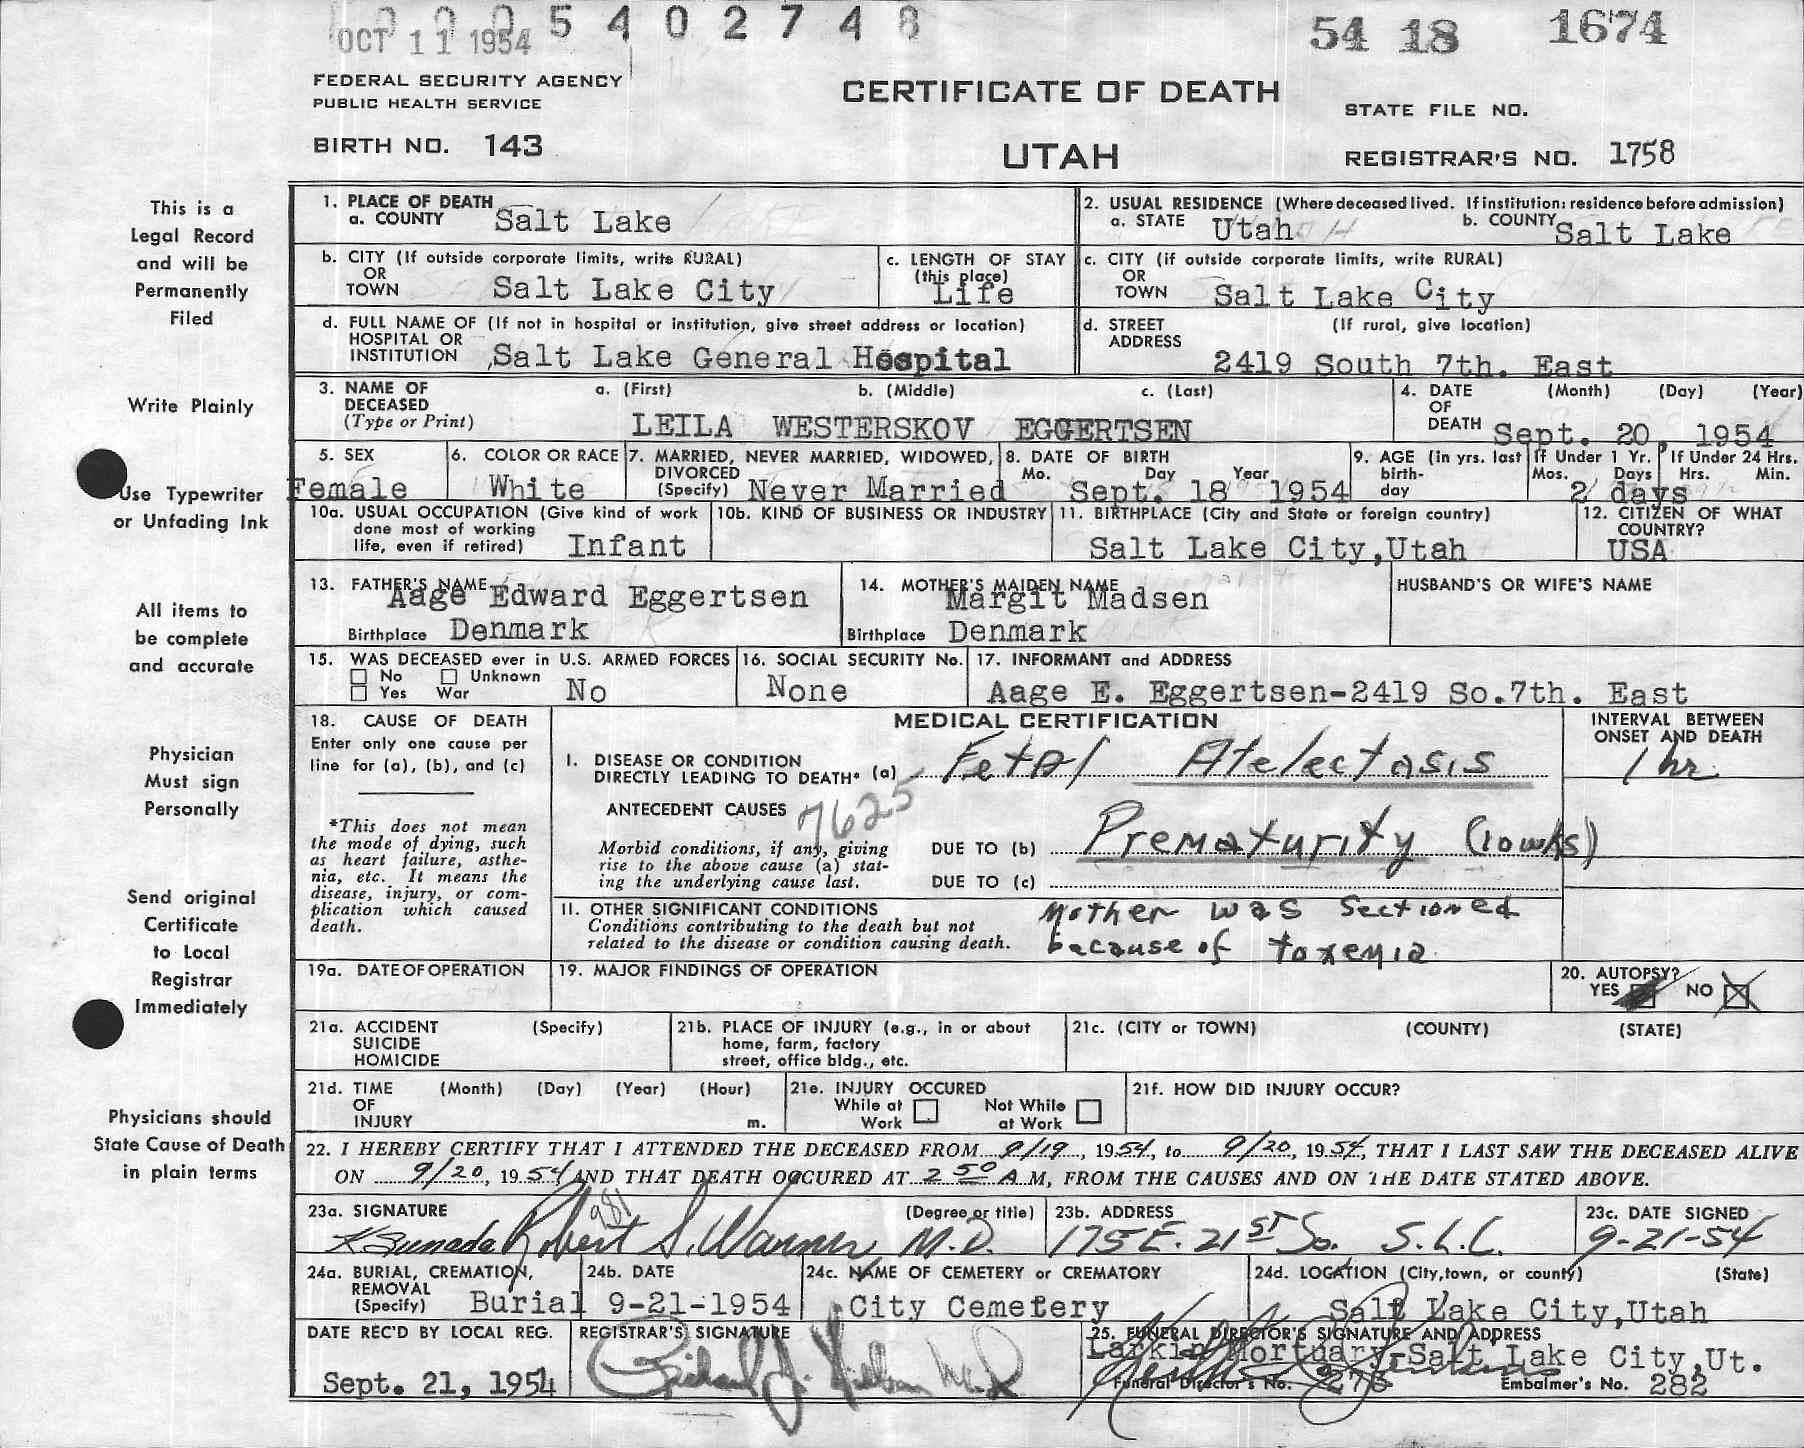 0 0 0 5 4 0 2 7 4 8
OCT 11 1954
54 18 1674
FEDERAL SECURITY AGENCY
PUBLIC HEALTH SERVICE
CERTIFICATE OF DEATH
STATE FILE NO.
BIRTH NO. 143
UTAH
REGISTRAR'S NO. 1758
This is a
Legal Record
and will be
Permanently
Filed
Write Plainly
Use Typewriter
or Unfading Ink
All items to
be complete
and accurate
Physician
Must sign
Personally
Send original
Certificate
to Local
Registrar
Immediately
Physicians should
State Cause of Death
in plain terms
1. PLACE OF DEATH
a. COUNTY Salt Lake
2. USUAL RESIDENCE (Where deceased lived. If institution: residence before admission)
a. STATE Utah b. COUNTY Salt Lake
b. CITY (If outside corporate limits, write RURAL)
OR
TOWN Salt Lake City
c. LENGTH OF STAY
(this place)
Life
c. CITY (if outside corporate limits, write RURAL)
OR
TOWN Salt Lake City
d. FULL NAME OF (If not in hospital or institution, give street address or location)
HOSPITAL OR
INSTITUTION Salt Lake General Hospital
d. STREET (If rural, give location)
ADDRESS
2419 South 7th. East
3. NAME OF a. (First) b. (Middle) c. (Last)
DECEASED
(Type or Print) LEILA WESTERSKOV EGGERTSEN
4. DATE (Month) (Day) (Year)
OF
DEATH Sept. 20, 1954
5. SEX
Female
6. COLOR OR RACE
White
7. MARRIED, NEVER MARRIED, WIDOWED,
DIVORCED
(Specify) Never Married
8. DATE OF BIRTH
Mo. Day Year
Sept. 18 1954
9. AGE (in yrs. last
birth-
day
If Under 1 Yr.
Mos. Days
If Under 24 Hrs.
Hrs. Min.
2 days
10a. USUAL OCCUPATION (Give kind of work
done most of working
life, even if retired) Infant
10b. KIND OF BUSINESS OR INDUSTRY
11. BIRTHPLACE (City and State or foreign country)
Salt Lake City,Utah
12. CITIZEN OF WHAT
COUNTRY?
USA
13. FATHER'S NAME
Aage Edward Eggertsen
Birthplace Denmark
14. MOTHER'S MAIDEN NAME
Margit Madsen
Birthplace Denmark
HUSBAND'S OR WIFE'S NAME
15. WAS DECEASED ever in U.S. ARMED FORCES
No Unknown
Yes War No
16. SOCIAL SECURITY No.
None
17. INFORMANT and ADDRESS
Aage E. Eggertsen-2419 So.7th. East
18. CAUSE OF DEATH
Enter only one cause per
line for (a), (b), and (c)
*This does not mean
the mode of dying, such
as heart failure, asthe-
nia, etc. It means the
disease, injury, or com-
plication which caused
death.
MEDICAL CERTIFICATION
INTERVAL BETWEEN
ONSET AND DEATH
I. DISEASE OR CONDITION
DIRECTLY LEADING TO DEATH* (a) Fetal Atelectasis 1 hr.
ANTECEDENT CAUSES 7625
Morbid conditions, if any, giving
rise to the above cause (a) stat-
ing the underlying cause last.
DUE TO (b) Prematurity (10wks)
DUE TO (c)
II. OTHER SIGNIFICANT CONDITIONS
Conditions contributing to the death but not
related to the disease or condition causing death.
Mother was sectioned
because of toxemia
19a. DATE OF OPERATION
19. MAJOR FINDINGS OF OPERATION
20. AUTOPSY?
YES NO
21a. ACCIDENT (Specify)
SUICIDE
HOMICIDE
21b. PLACE OF INJURY (e.g., in or about
home, farm, factory
street, office bldg., etc.
21c. (CITY or TOWN) (COUNTY) (STATE)
21d. TIME (Month) (Day) (Year) (Hour)
OF
INJURY m.
21e. INJURY OCCURED
While at Not While
Work at Work
21f. HOW DID INJURY OCCUR?
22. I HEREBY CERTIFY THAT I ATTENDED THE DECEASED FROM 9/19, 1954, to 9/20, 1954, THAT I LAST SAW THE DECEASED ALIVE
ON 9/20, 1954 AND THAT DEATH OCCURED AT 2 50 A M, FROM THE CAUSES AND ON THE DATE STATED ABOVE.
23a. SIGNATURE (Degree or title)
981
Robert S. Warner M.D.
23b. ADDRESS
175 E. 21st So. S.L.C.
23c. DATE SIGNED
9-21-54
24a. BURIAL, CREMATION,
REMOVAL
(Specify) Burial
24b. DATE
9-21-1954
24c. NAME OF CEMETERY or CREMATORY
City Cemetery
24d. LOCATION (City,town, or county) (State)
Salt Lake City,Utah
DATE REC'D BY LOCAL REG.
Sept. 21, 1954
REGISTRAR'S SIGNATURE
25. FUNERAL DIRECTOR'S SIGNATURE AND ADDRESS
Larkin Mortuary-Salt Lake City,Ut.
Funeral Director's No. 276 Embalmer's No. 282